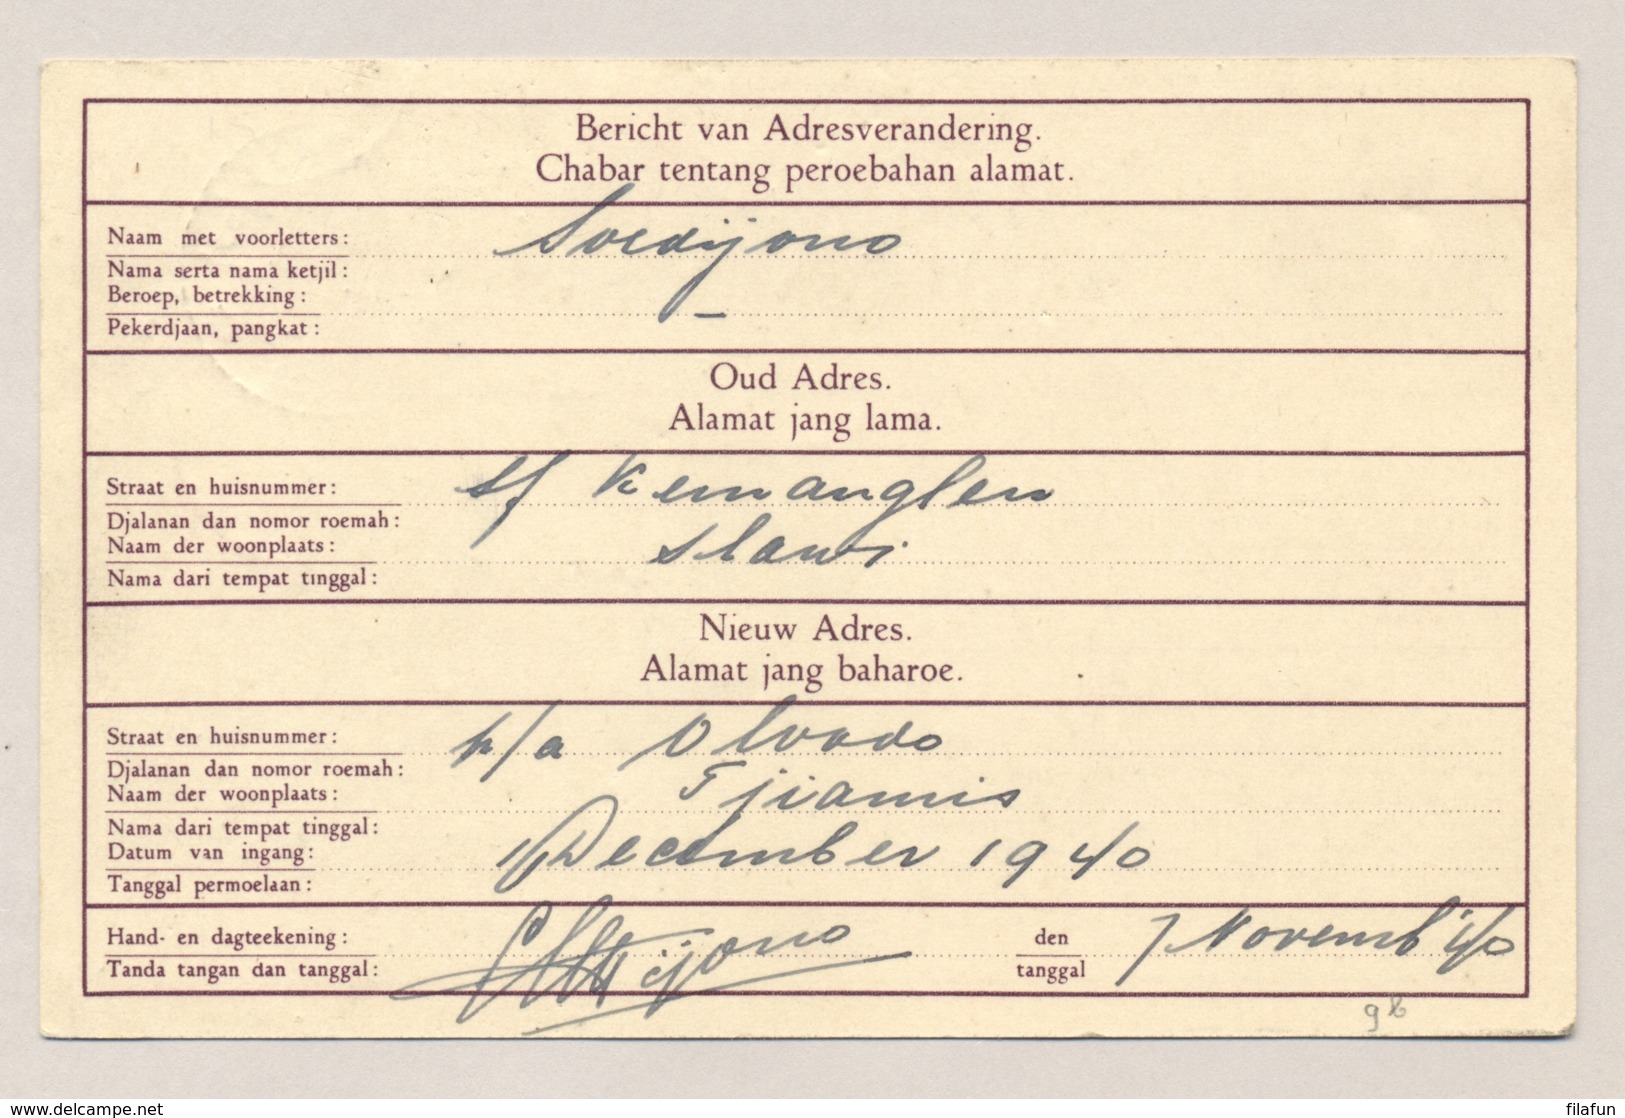 Bericht van Adresverandering.
Chabar tentang peroebahan alamat.
Naam met voorletters: Soedijono
Nama serta nama ketjil:
Beroep, betrekking: —
Pekerdjaan, pangkat:
Oud Adres.
Alamat jang lama.
Straat en huisnummer: sf Kemanglen
Djalanan dan nomor roemah:
Naam der woonplaats: Slawi
Nama dari tempat tinggal:
Nieuw Adres.
Alamat jang baharoe.
Straat en huisnummer: p/a Olvado
Djalanan dan nomor roemah:
Naam der woonplaats: Tjiamis
Nama dari tempat tinggal:
Datum van ingang: 1/December 1940
Tanggal permoelaan:
Hand- en dagteekening: den 7 Novemb '40
Tanda tangan dan tanggal: tanggal
www.delcampe.net
filafun